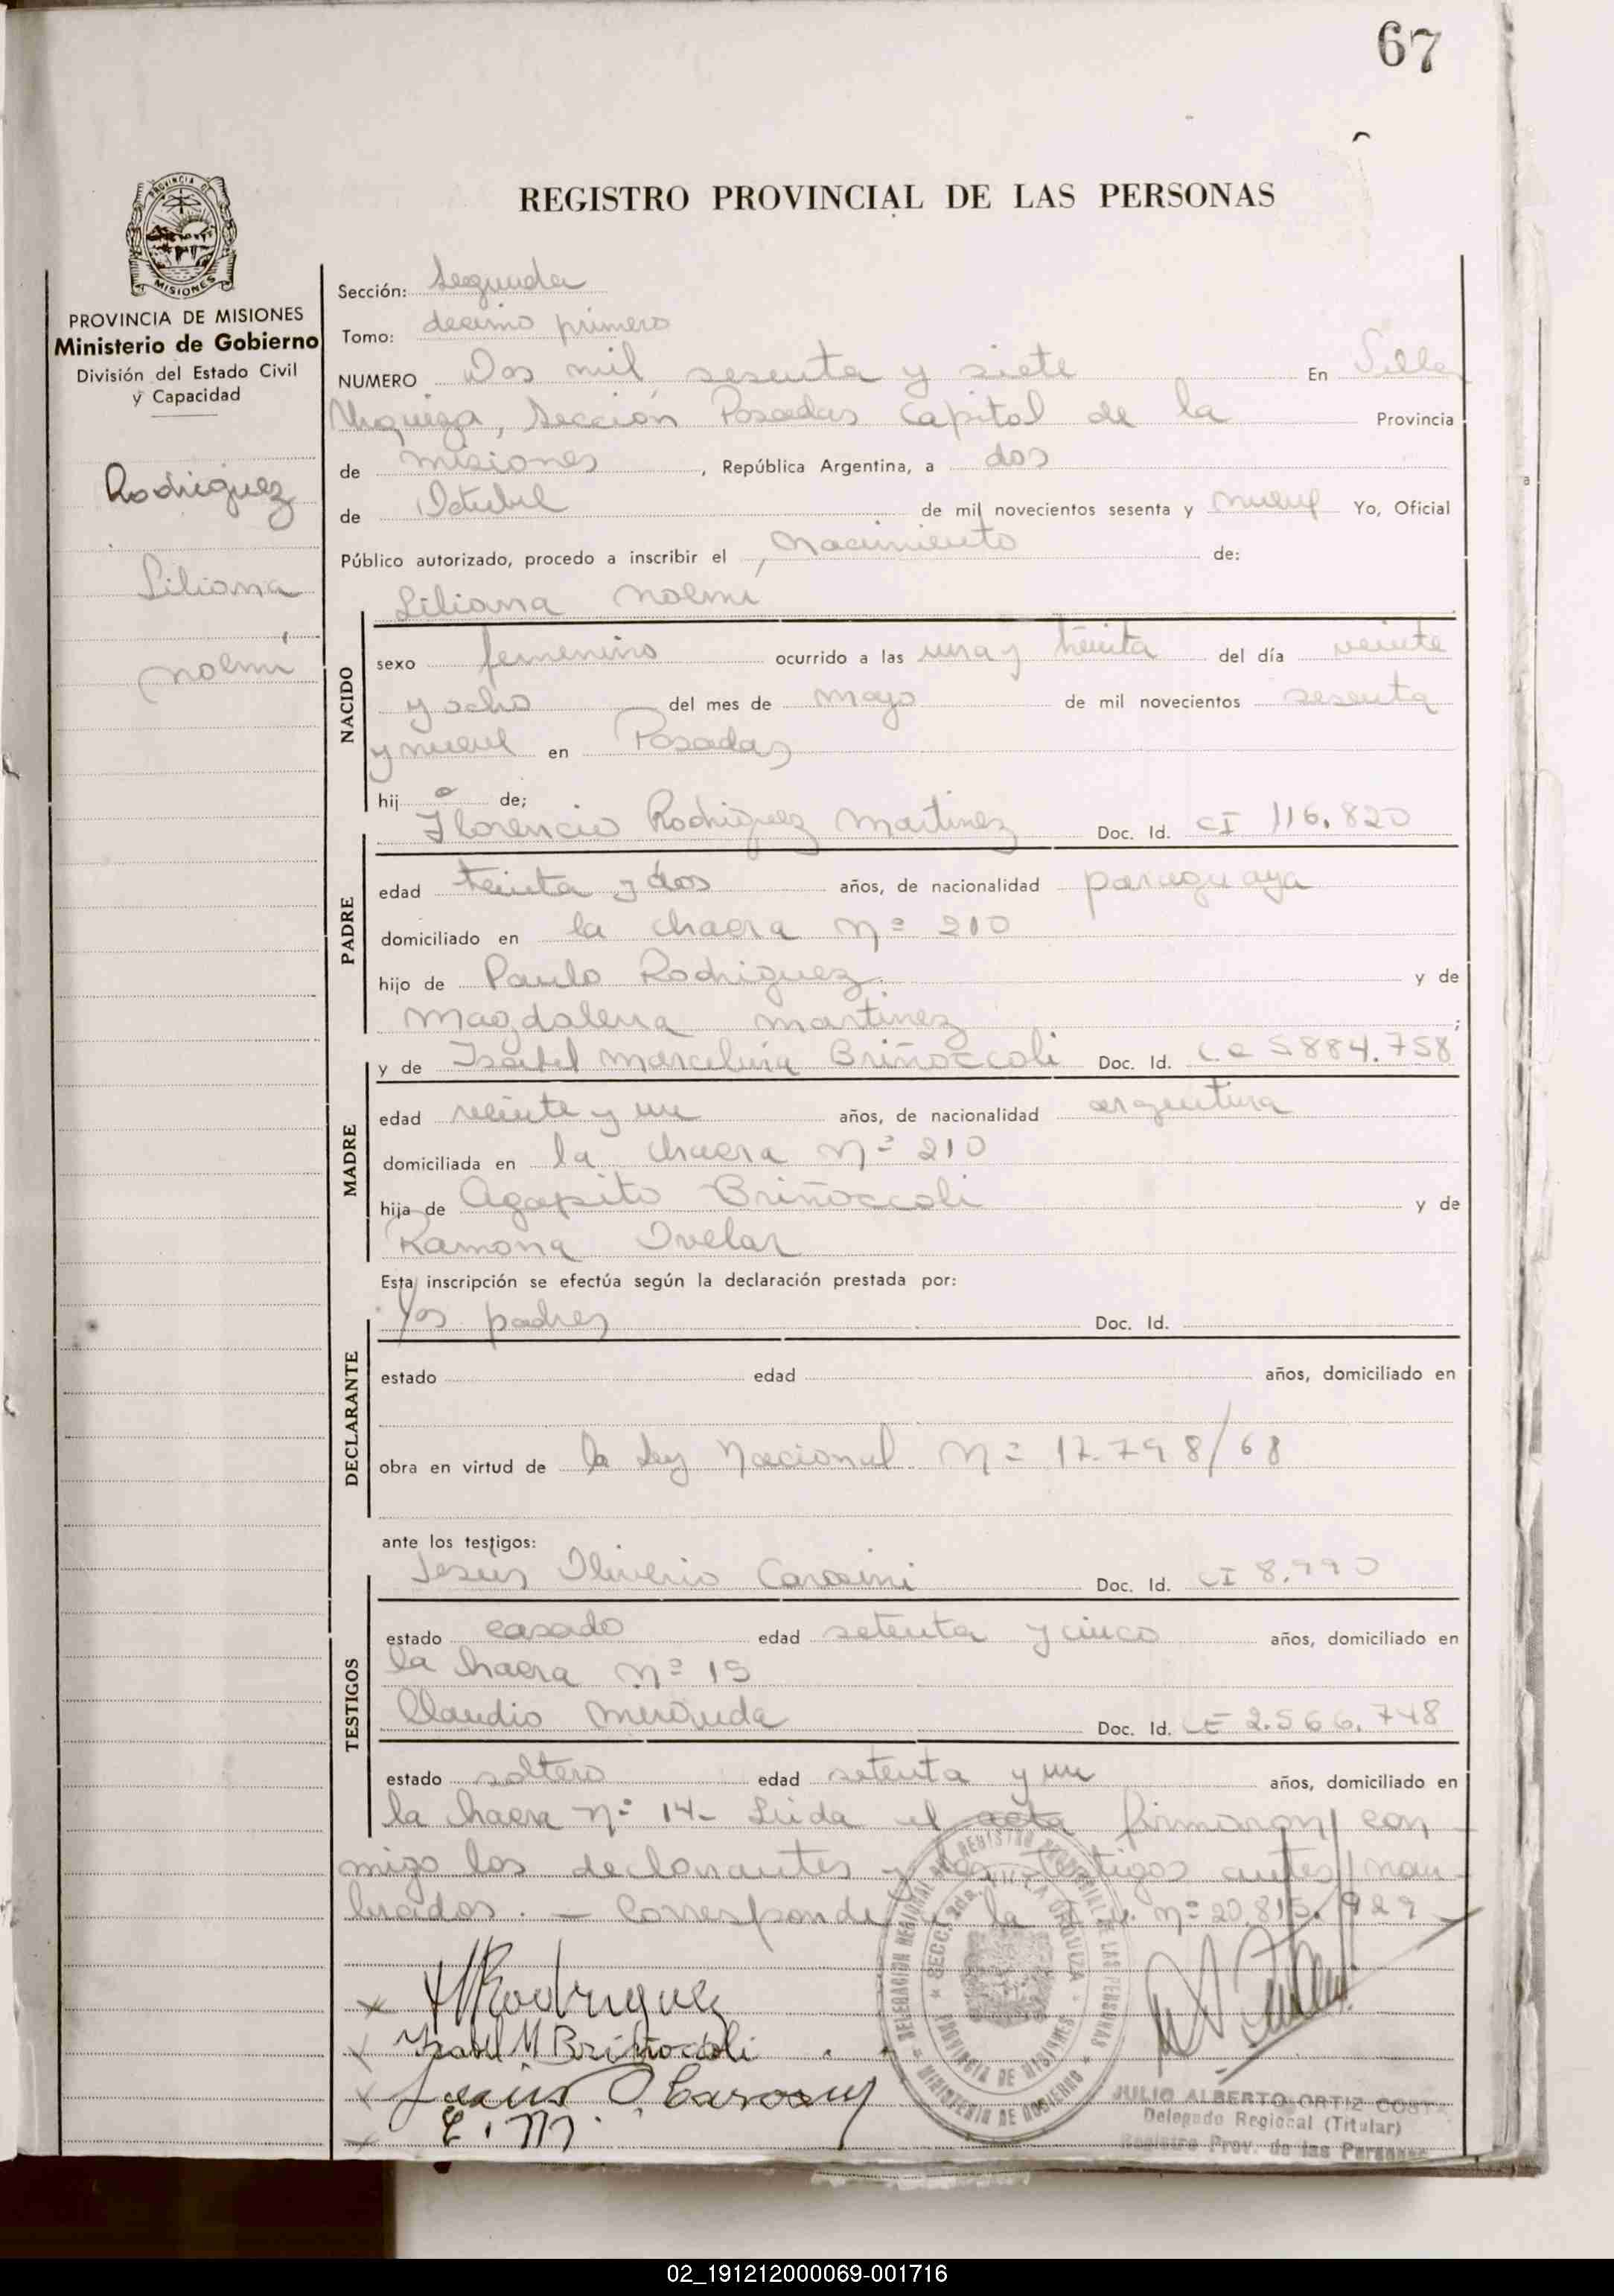 67
REGISTRO PROVINCIAL DE LAS PERSONAS
PROVINCIA DE MISIONES
MISIONES
PROVINCIA DE MISIONES
Ministerio de Gobierno
División del Estado Civil
y Capacidad
Rodriguez
Liliana
noemí
Sección: Segunda
Tomo: decimo primero
NUMERO Dos mil sesenta y siete En Villa
Urquiza, Sección Posadas Capital de la Provincia
de misiones, República Argentina, a dos
de Octubre de mil novecientos sesenta y nueve Yo, Oficial
Público autorizado, procedo a inscribir el nacimiento de:
Liliana noemi
NACIDO
sexo femenino ocurrido a las una y treinta del día veinte
y ocho del mes de mayo de mil novecientos sesenta
y nueve en Posadas
hij a de;
Florencio Rodriguez Martinez Doc. Id. CI 116.820
PADRE
edad treinta y dos años, de nacionalidad paraguaya
domiciliado en la chacra Nº 210
hijo de Paulo Rodriguez y de
Magdalena martinez;
y de Isabel Marcelina Briñoccoli Doc. Id. L.C 5884.758
MADRE
edad veinte y un años, de nacionalidad argentina
domiciliada en la chacra Nº 210
hija de Agapito Briñoccoli y de
Ramona Ovelar
Esta inscripción se efectúa según la declaración prestada por:
los padres Doc. Id.
DECLARANTE
estado edad años, domiciliado en
obra en virtud de la Ley Nacional Nº 17.798/68
ante los testigos:
Jesús Oliverio Doc. Id. CI 8.990
TESTIGOS
estado casado edad setenta y cinco años, domiciliado en
la chacra Nº 15
Claudio Doc. Id. LE 2.566.748
estado soltero edad setenta y un años, domiciliado en
la chacra nº 14- Leida el acta firmaron con
migo los declarantes y los testigos antes nom
brados. — Corresponde la nº 20.815.929
Rodriguez
Isabel M Briñoccoli
Jesús O
E. M.
DELEGACION REGIONAL DEL REGISTRO PROVINCIAL DE LAS PERSONAS
MINISTERIO DE GOBIERNO
SECC. 2da. VILLA URQUIZA
PROVINCIA DE MISIONES
JULIO ALBERTO ORTIZ COSTA
Delegado Regional (Titular)
Registro Prov. de las Personas
02_191212000069-001716